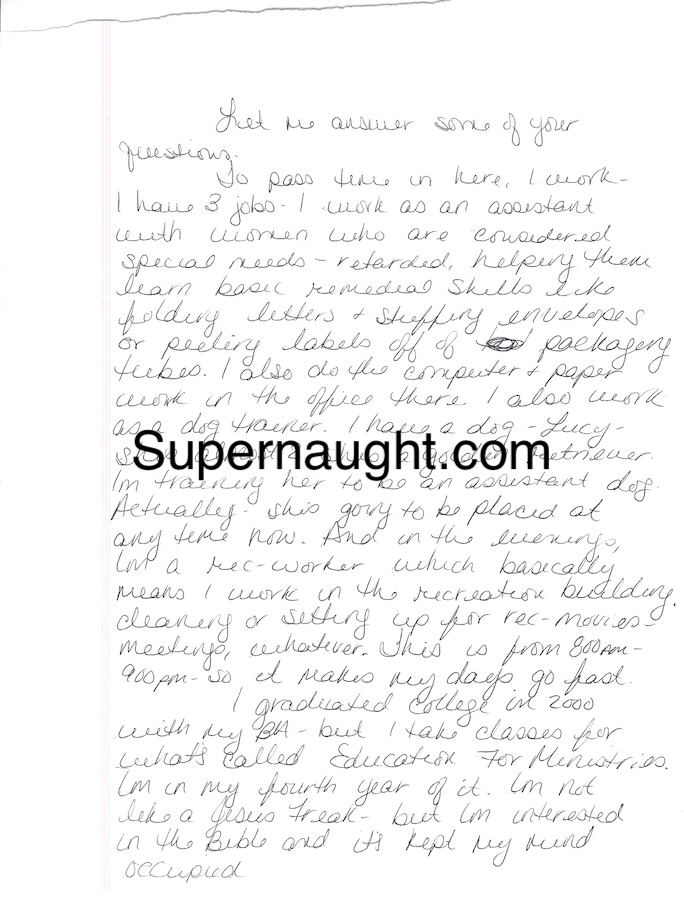 Let me answer some of your
questions.
To pass time in here, I work-
I have 3 jobs- I work as an assistant
with women who are considered
special needs - retarded, helping them
learn basic remedial skills like
folding letters + stuffing envelopes
or peeling labels off of packaging
tubes. I also do the computer + paper
work in the office there. I also work
as a dog trainer. I have a dog - Lucy-
Supernaught.com
retriever.
Im training her to be an assistant dog.
Actually- shis going to be placed at
any time now. And in the evenings,
Im a rec-worker which basically
means I work in the recreation building,
cleaning or setting up for rec-movies-
meetings, whatever. This is from 800am-
900pm- so it makes my days go fast.
I graduated college in 2000
with my BA - but I take classes for
what's called Education For Ministries.
Im in my fourth year of it. Im not
like a Jesus Freak- but Im interested
in the Bible and it's kept my mind
occupied